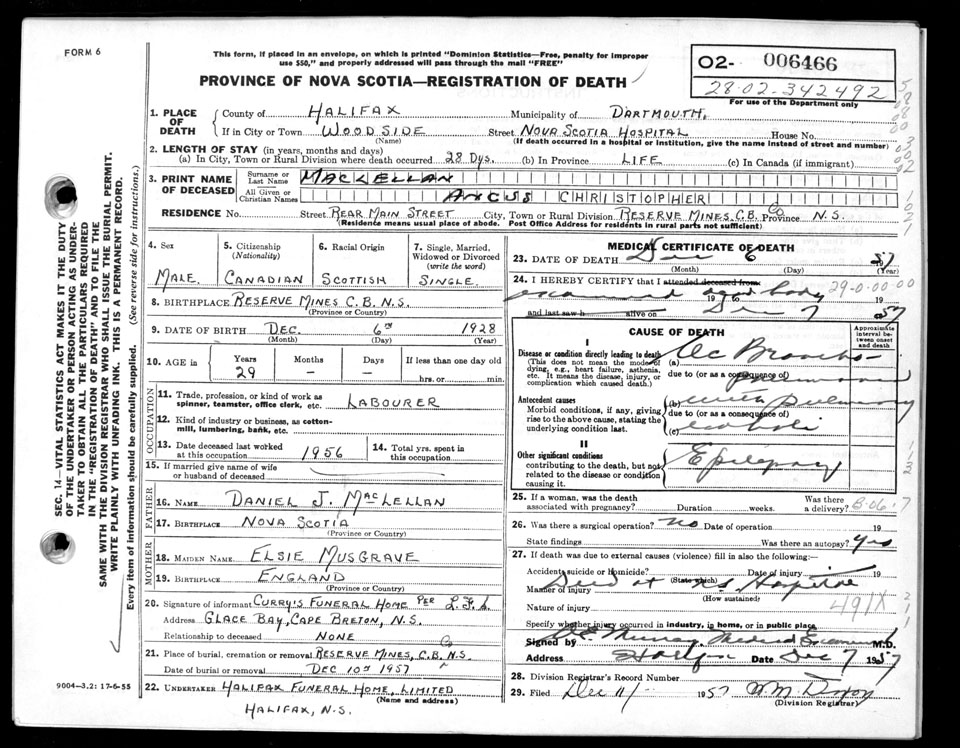 FORM 6
This form, if placed in an envelope, on which is printed "Dominion Statistics—Free, penalty for improper
use $50," and properly addressed will pass through the mail "FREE"
PROVINCE OF NOVA SCOTIA—REGISTRATION OF DEATH
02- 006466
28-02-342492
For use of the Department only
SEC. 14—VITAL STATISTICS ACT MAKES IT THE DUTY
OF THE UNDERTAKER OR PERSON ACTING AS UNDER-
TAKER TO OBTAIN ALL THE PARTICULARS REQUIRED
IN THE "REGISTRATION OF DEATH" AND TO FILE THE
SAME WITH THE DIVISION REGISTRAR WHO SHALL ISSUE THE BURIAL PERMIT.
WRITE PLAINLY WITH UNFADING INK. THIS IS A PERMANENT RECORD.
Every item of information should be carefully supplied. (See reverse side for instructions.)
1. PLACE OF DEATH
County of HALIFAX Municipality of DARTMOUTH,
If in City or Town WOODSIDE Street NOVA SCOTIA HOSPITAL House No.
(Name) (If death occurred in a hospital or institution, give the name instead of street and number)
2. LENGTH OF STAY (in years, months and days)
(a) In City, Town or Rural Division where death occurred 28 DYS. (b) In Province LIFE (c) In Canada (if immigrant)
3. PRINT NAME OF DECEASED
Surname or Last Name MACLELLAN
All Given or Christian Names ANGUS CHRISTOPHER
RESIDENCE No. Street REAR MAIN STREET City, Town or Rural Division RESERVE MINES, C.B. Co Province N.S.
(Residence means usual place of abode. Post Office Address for residents in rural parts not sufficient)
4. Sex
MALE.
5. Citizenship (Nationality)
CANADIAN
6. Racial Origin
SCOTTISH
7. Single, Married, Widowed or Divorced (write the word)
SINGLE.
8. BIRTHPLACE RESERVE MINES C.B. N.S.
(Province or Country)
9. DATE OF BIRTH DEC. 6TH 1928
(Month) (Day) (Year)
10. AGE in Years Months Days If less than one day old
29 – – hrs. or min.
OCCUPATION
11. Trade, profession, or kind of work as
spinner, teamster, office clerk, etc. LABOURER
12. Kind of industry or business, as cotton-
mill, lumbering, bank, etc.
13. Date deceased last worked
at this occupation 1956
14. Total yrs. spent in
this occupation
15. If married give name of wife
or husband of deceased
FATHER
16. NAME DANIEL J. MACLELLAN
17. BIRTHPLACE NOVA SCOTIA
(Province or Country)
MOTHER
18. MAIDEN NAME. ELSIE MUSGRAVE
19. BIRTHPLACE ENGLAND
(Province or Country)
20. Signature of informant CURRY'S FUNERAL HOME PER
Address GLACE BAY, CAPE BRETON, N.S.
Relationship to deceased NONE
21. Place of burial, cremation or removal RESERVE MINES, C.B. Co N.S.
Date of burial or removal DEC 10TH 1957
22. UNDERTAKER HALIFAX FUNERAL HOME, LIMITED
(Name and address)
HALIFAX, N.S.
9004—3.2: 17-6-55
MEDICAL CERTIFICATE OF DEATH
23. DATE OF DEATH Dec 6 57
(Month) (Day) (Year)
24. I HEREBY CERTIFY that I attended deceased from 29-0-00-00
examined dead body 19 to 19
and last saw h alive on Dec 7 1957
CAUSE OF DEATH
Approximate interval between onset and death
I
Disease or condition directly leading to death
(This does not mean the mode of
dying, e.g., heart failure, asthenia,
etc. It means the disease, injury, or
complication which caused death.)
(a) Ac Broncho-
due to (or as a consequence of)
pneumonia
Antecedent causes
Morbid conditions, if any, giving
rise to the above cause, stating the
underlying condition last.
(b) with pulmonary
due to (or as a consequence of)
(c) emboli
II
Other significant conditions
contributing to the death, but not
related to the disease or condition
causing it.
Epilepsy
25. If a woman, was the death
associated with pregnancy? Duration weeks. Was there a delivery?
26. Was there a surgical operation? no Date of operation 19
State findings Was there an autopsy? yes
27. If death was due to external causes (violence) fill in also the following:—
Accident, suicide or homicide? Date of injury 19
(State which)
Manner of injury Died at N.S. Hospital
(How sustained)
Nature of injury 491X
Specify whether injury occurred in industry, in home, or in public place
Signed by Murray Medical Examiner M.D.
Address Halifax Date Dec 7 1957
28. Division Registrar's Record Number
29. Filed Dec 11/ 1957 W.M. Dixon
(Division Registrar)